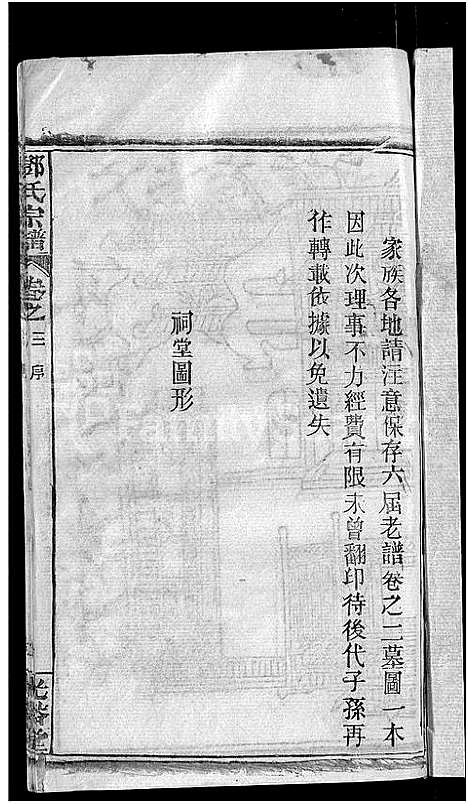 家族各地請注意保存六届老譜卷之二墓圖一本
因此次理事不力經費有限未曾翻印待後代子孫再
作轉載依據以免遺失
祠堂圖形
鄧氏宗譜
卷之三
序
光裕堂